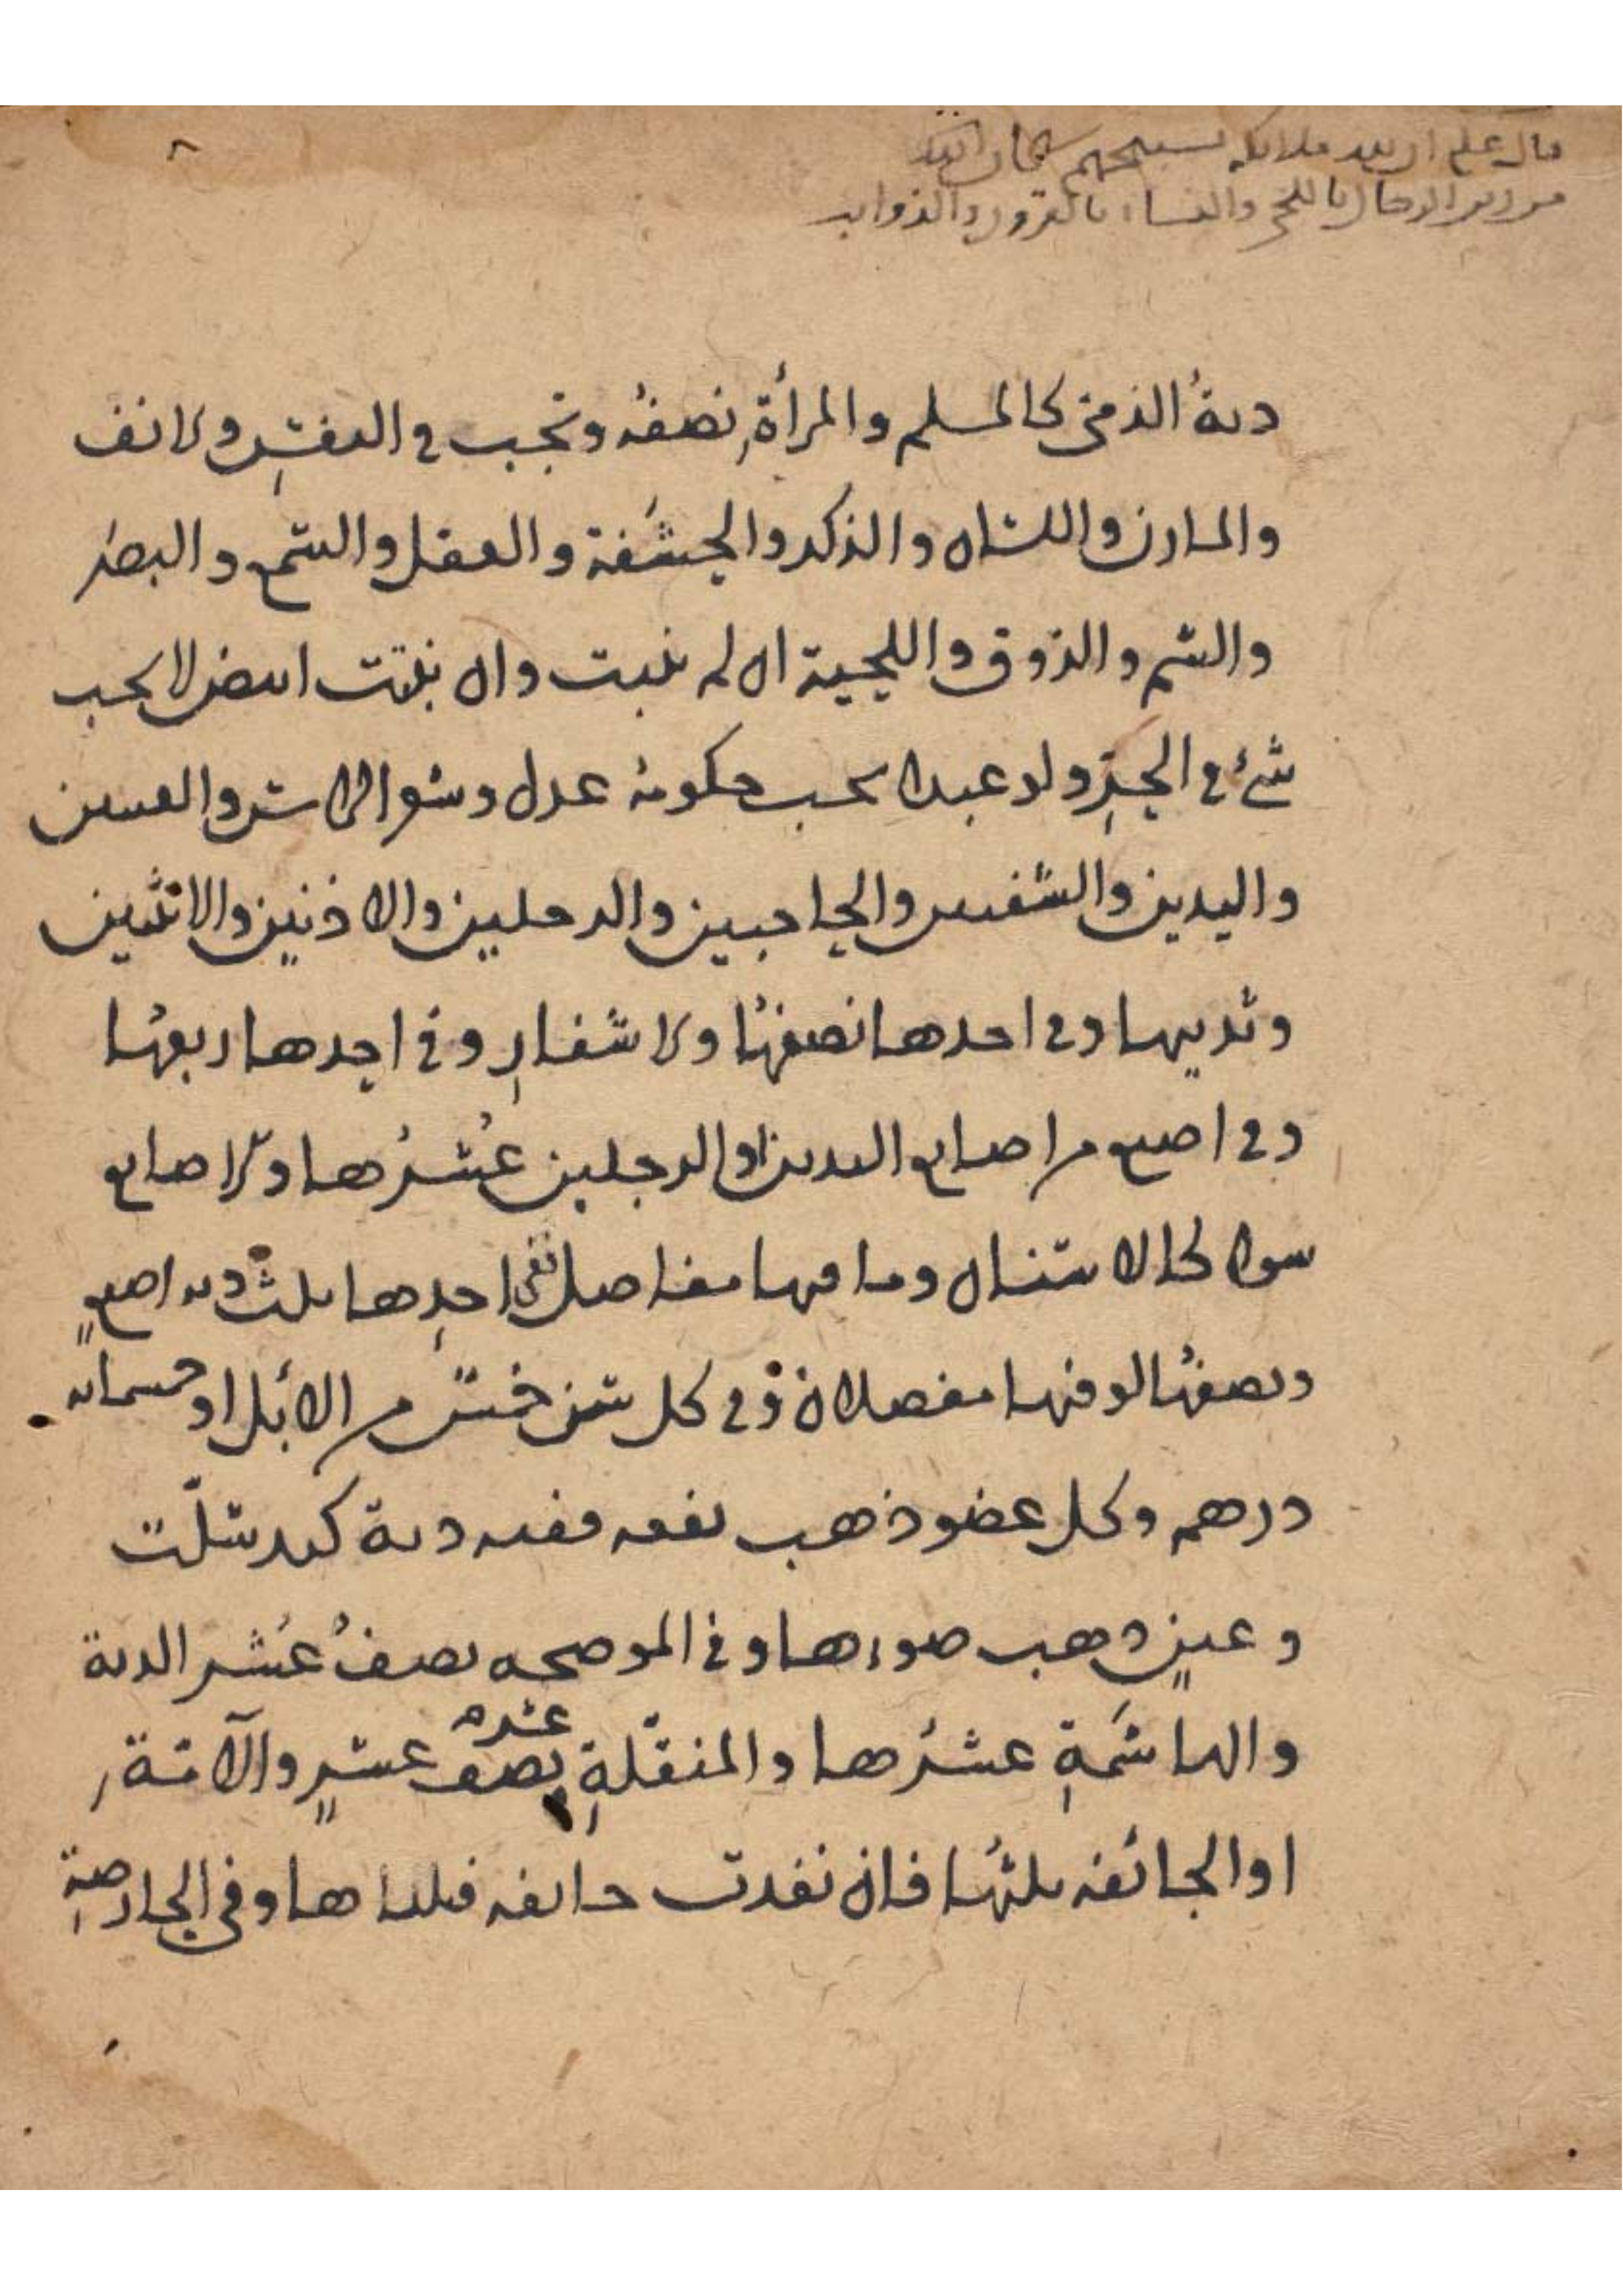 قال علم ان لله ملائكة تسبيحهم سبحان الذي
من زين الرجال باللحى والنساء بالقرون والذوايب
دية الذمي كالمسلم والمرأة نصفه وتجب في النفس والانف
والمارن واللسان والذكر والحشفة والعقل والسمع والبصر
والشم والذوق واللحية ان لم تنبت وان نبتت ابيض لا يجب
شئ في الحر ولو عبدا يجب حكومة عدل وشعر الراس والعينين
واليدين والشفتين والحاجبين والرجلين والاذنين والانثيين
وثدييها وفي احدها نصفها والاشفار وفي احدها ربعها
وفي اصبع من اصابع اليدين او الرجلين عُشرُها والاصابع
سواء كالاسنان وما فيها مفاصل ففي احدها ثلث دية اصبعٍ
ونصفها لو فيها مفصلان وفي كل سن خمس من الابل او خمسمايه
درهم وكل عضو ذهب نفعه ففيه دية كيد شلّت
وعينٍ ذهب ضوءها وفي الموضحه نصفُ عُشر الدية
والهاشمَةِ عشرُها والمنقّلةِ عشره نصف عشرٍ والآمّة
او الجائفه ثلثها فان نفذت جايفه فثلثاها وفي الحارصةِ